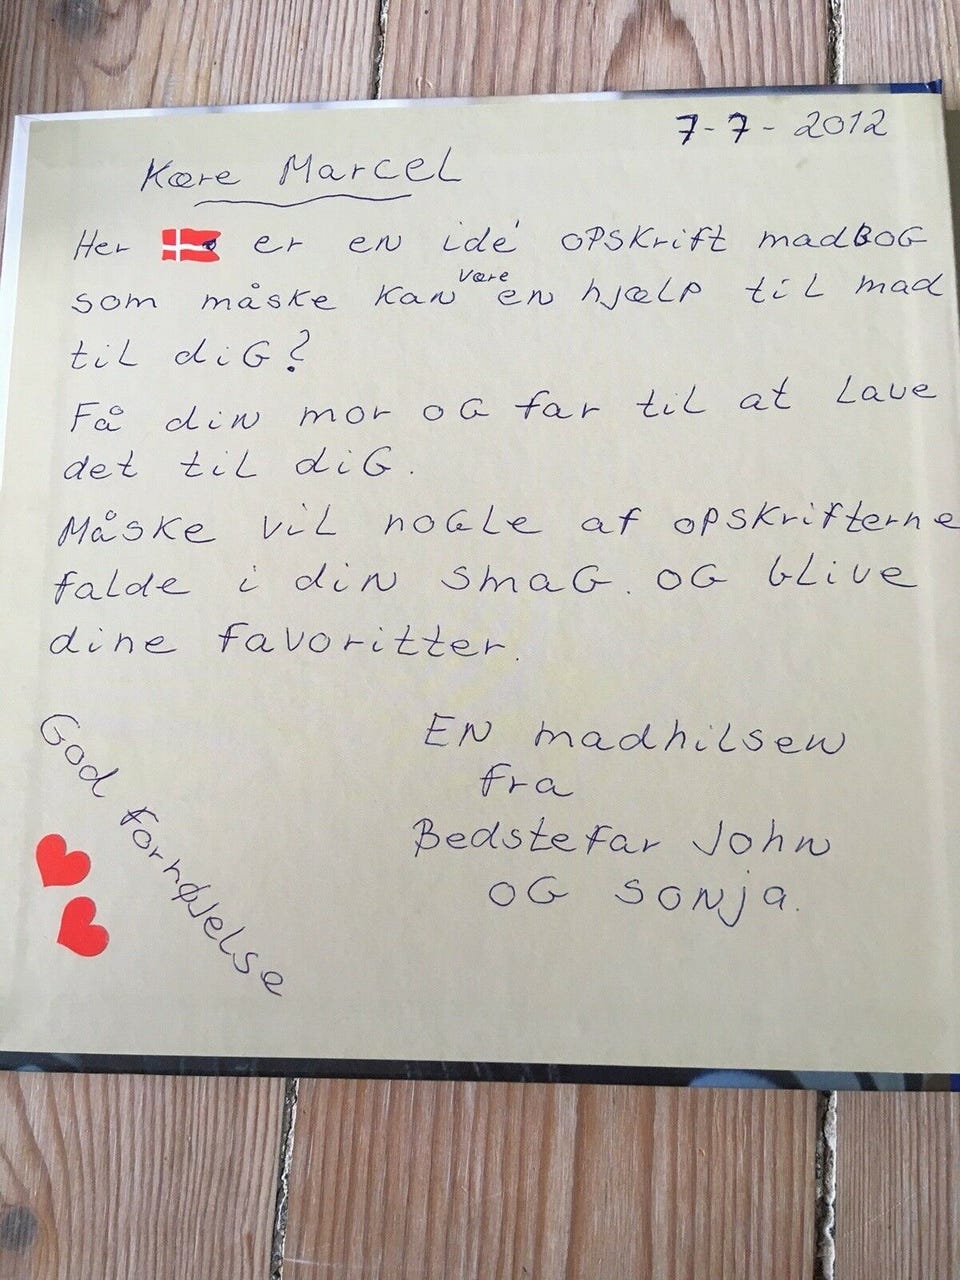 7-7-2012
Kære Marcel
Her er en idé opskrift madBOG
som måske kan være en hjælp til mad
til dig?
Få din mor og far til at lave
det til dig.
Måske vil nogle af opskrifterne
falde i din smag. og blive
dine favoritter.
God fornøjelse
En madhilsen
fra
Bedstefar John
og Sonja.